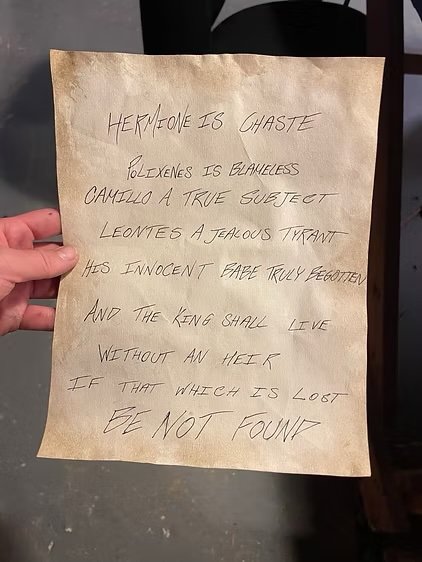 HERMIONE IS CHASTE
POLIXENES IS BLAMELESS
CAMILLO A TRUE SUBJECT
LEONTES A JEALOUS TYRANT
HIS INNOCENT BABE TRULY BEGOTTEN
AND THE KING SHALL LIVE
WITHOUT AN HEIR
IF THAT WHICH IS LOST
BE NOT FOUND